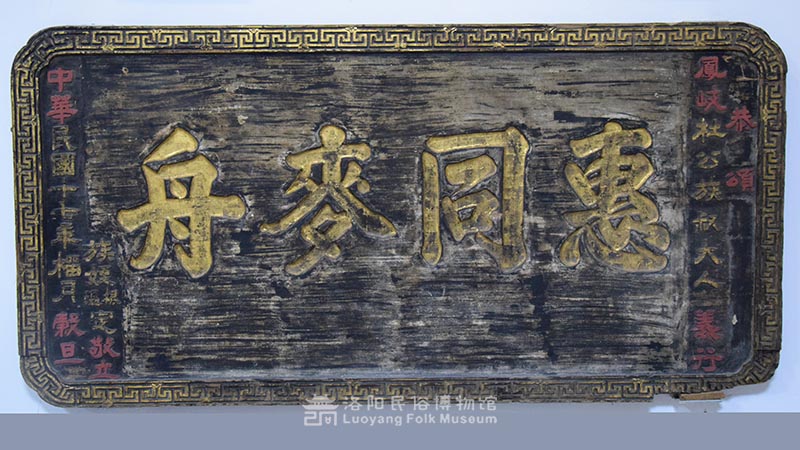 恭頌
鳳岐杜公族叔大人義行
惠同麥舟
族姪
敬立
中華民國十七年榴月穀旦
洛阳民俗博物馆
Luoyang Folk Museum